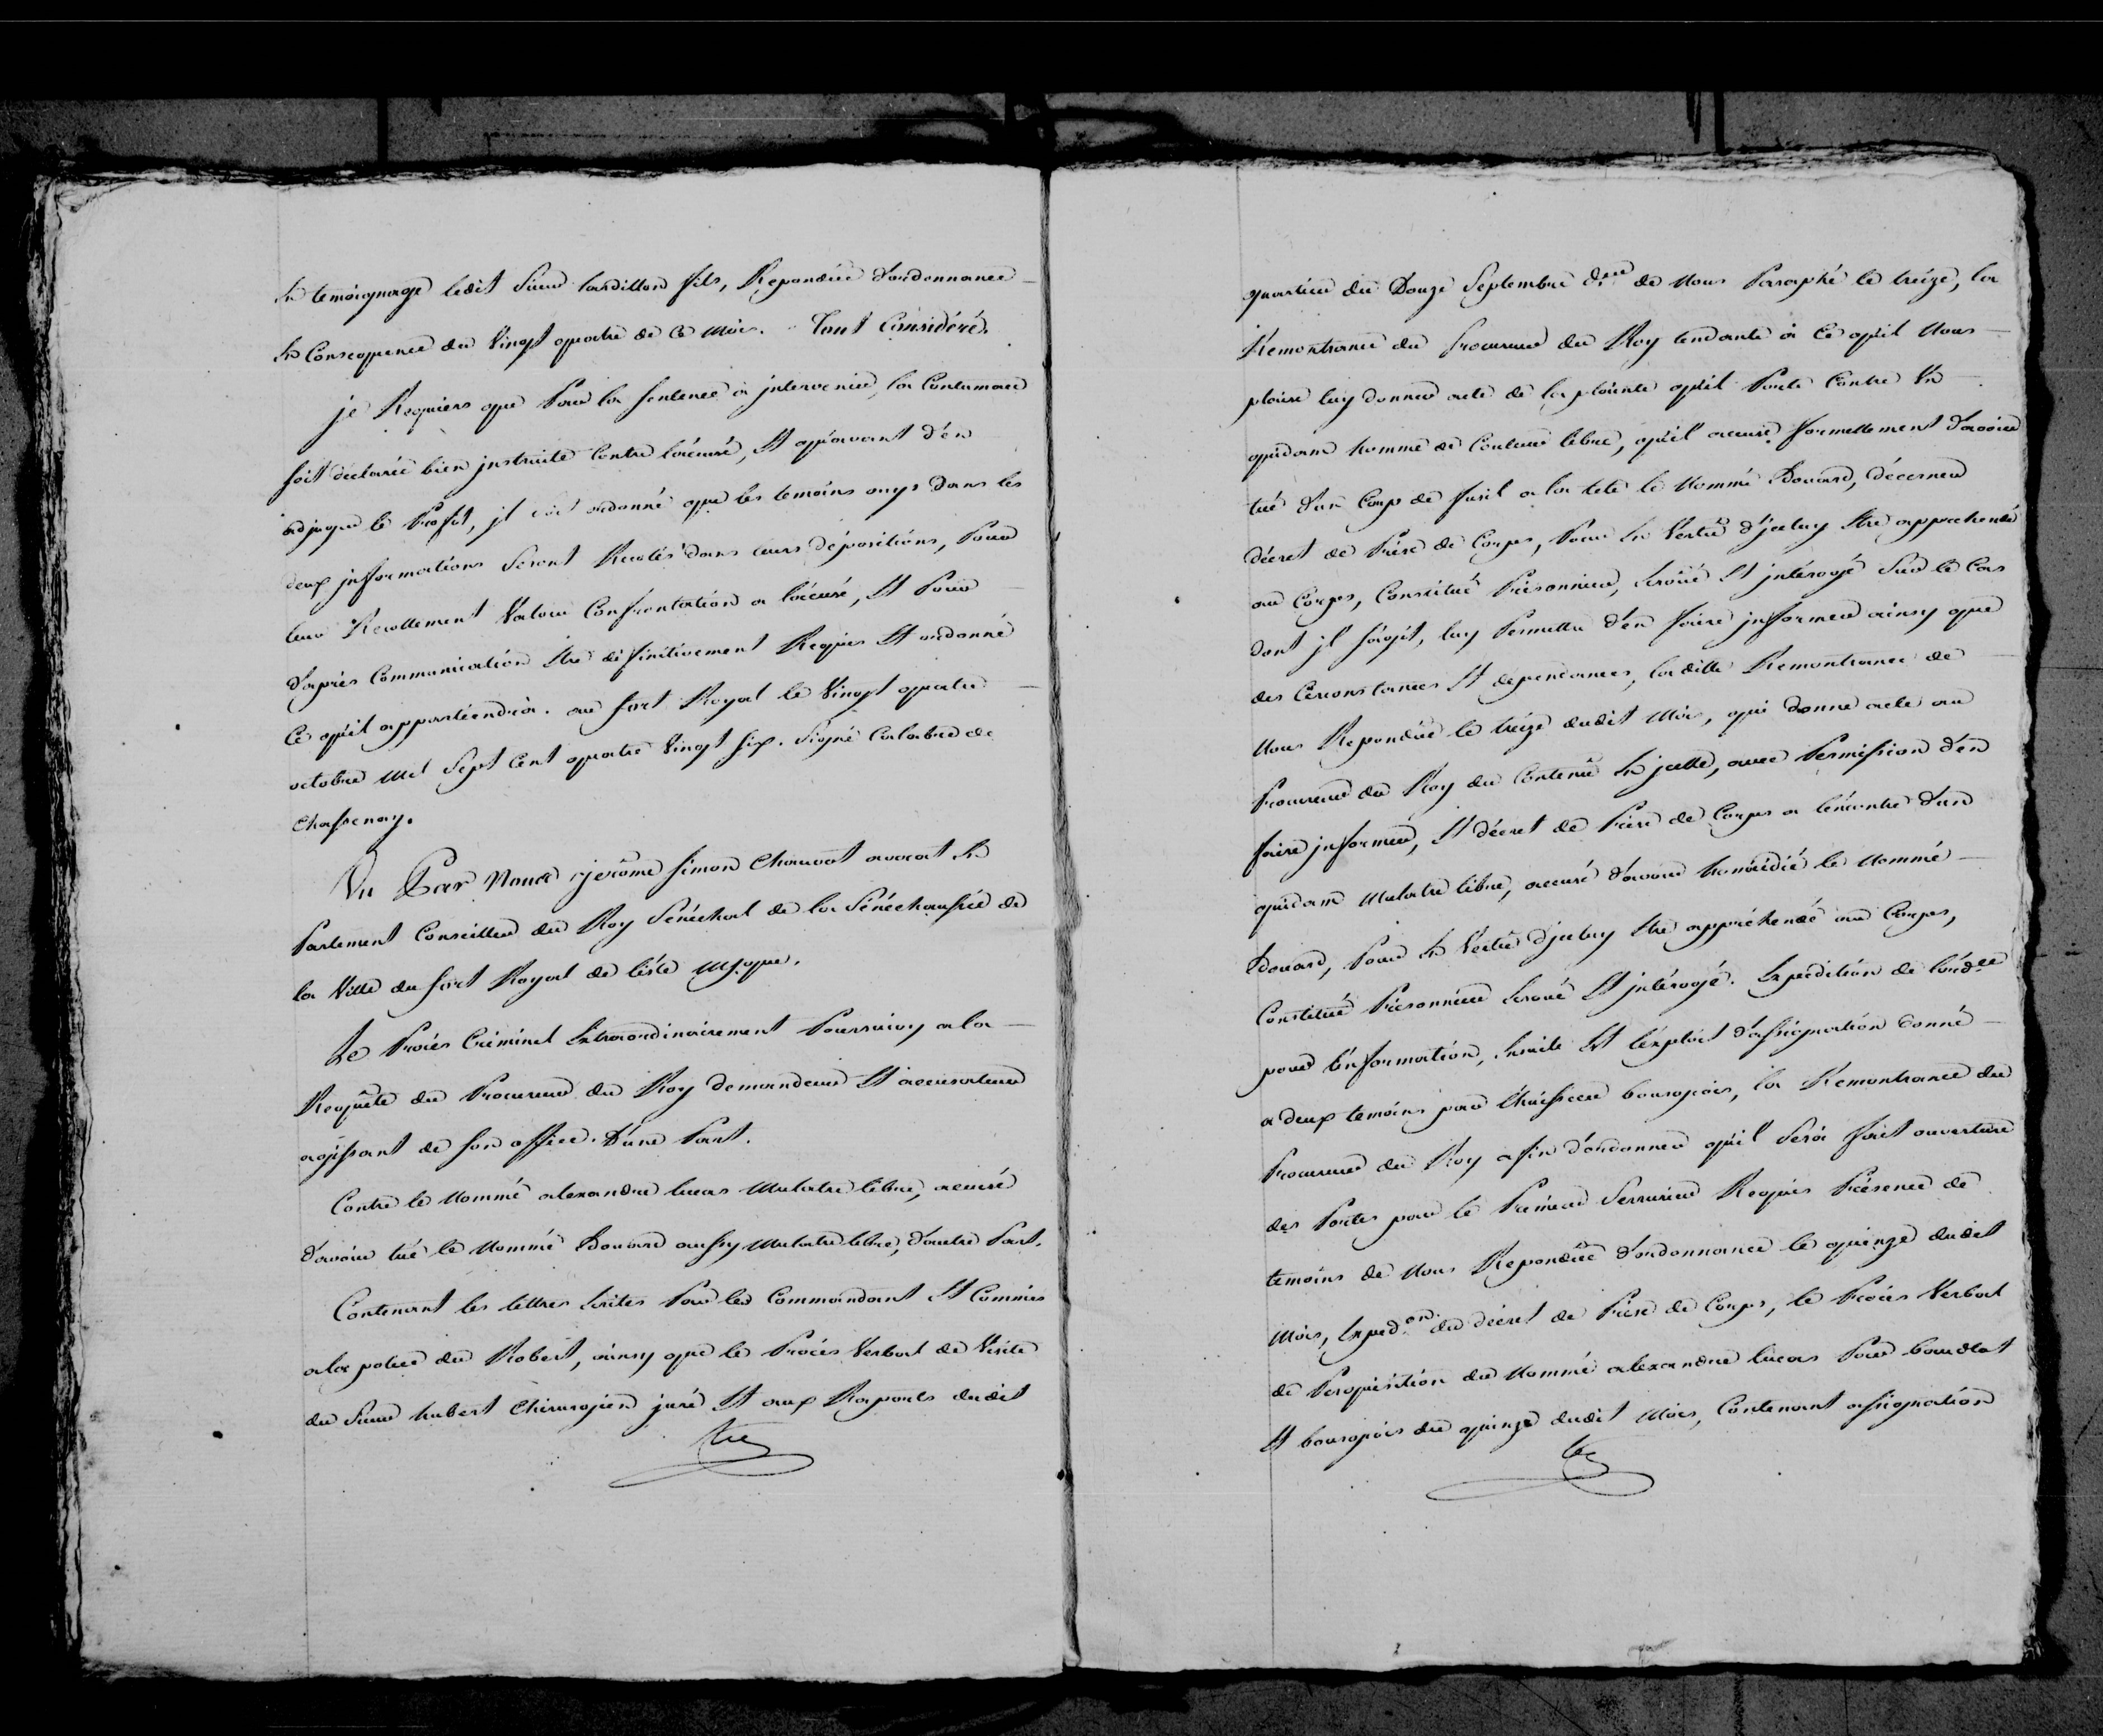 En temoignage ledit Sieur lardillon fils, Repondüe d'ordonnance
En Consequence du Vingt quatre de ce mois. Tout Considéré.
je Requiers que Par la Sentence à jntervenir, la Contumace
soit déclarée bien jnstruite Contre l'acusé, Et qu'avant d'en
adjuger le Profit, jl soit ordonné que les temoins ouys dans les
deux jnformations Seront Recolés dans leurs dépositions, Pour
leur Recollement Valoir Confrontation a l'acusé, Et Pour
d'aprés Communication Etre définitivement Requis Et ordonné
Ce qu'il appartiendra. au fort Royal le Vingt quatre
octobre Mil Sept Cent quatre Vingt six. Signé Calabre de
Chassenay.
Vu Par Nous jerôme Simon Chauvot avocat En
Parlement Conseiller du Roy Sénéchal de la Sénéchaussée de
la Ville du fort Royal de l'isle Mque.
Le Procès Criminel Extraordinairement Poursuivy a la
Requête du Procureur du Roy demandeur Et accusateur
agissant de son office. D'une Part.
Contre le Nommé alexandre lucas Mulatre libre, acusé
d'avoir tué le Nommé Edouard aussy Mulatre libre, d'autre Part.
Contenant les lettres Ecrites Par les Commandant Et Commis
a la police du Robert, ainsy que le Procès Verbal de Visite
du Sieur hubert Chirurgien juré Et aux Raports dudit
quartier du Douze Septembre der de Nous Paraphé le treize, la
Remontrance du Procureur du Roy tendante à Ce qu'il Nous
plaise luy donner acte de la plainte qu'il Porte Contre Un
quidam homme de Couleur libre, qu'il accuse formellement d'avoir
tué d'un Coup de fusil a la tete le Nommé Edouard, décerner
décret de Prise de Corps, Pour En Vertu d'jceluy Etre apprehendé
au Corps, Constitué Prisonnier, Ecroüé Et jntérogé Sur le Cas
dont jl s'agit, luy Permettre d'en faire jnformer ainsy que
des Circonstances Et dependances, laditte Remontrance de
Nous Repondüe le treize dudit Mois, qui donne acte au
Procureur du Roy du Contenû En jcelle, avec Permission d'en
faire jnformer, Et décret de Prise de Corps a l'encontre d'un
quidam Mulatre libre, accusé d'avoir homicidié le Nommé
Edouard, Pour En Vertu d'jceluy Etre appréhendé au Corps,
Constitué Prisonnier Ecroué Et jntérogé. Expédition de l'ordce
pour l'information, Ensuite Est l'exploit d'assignation donné
a deux temoins par l'huissier bourgeois, la Remontrance du
Procureur du Roy afin d'ordonner qu'il Sera fait ouverture
des Portes par le Premier Serrurier Requis Présence de
temoins de Nous Repondüe d'ordonnance le quinze dudit
Mois, Expedon du décret de Prise de Corps, le Procès Verbal
de Perquisition du Nommé alexandre lucas Par baudlot
Et bourgeois du quinze dudit Mois, Contenant assignation